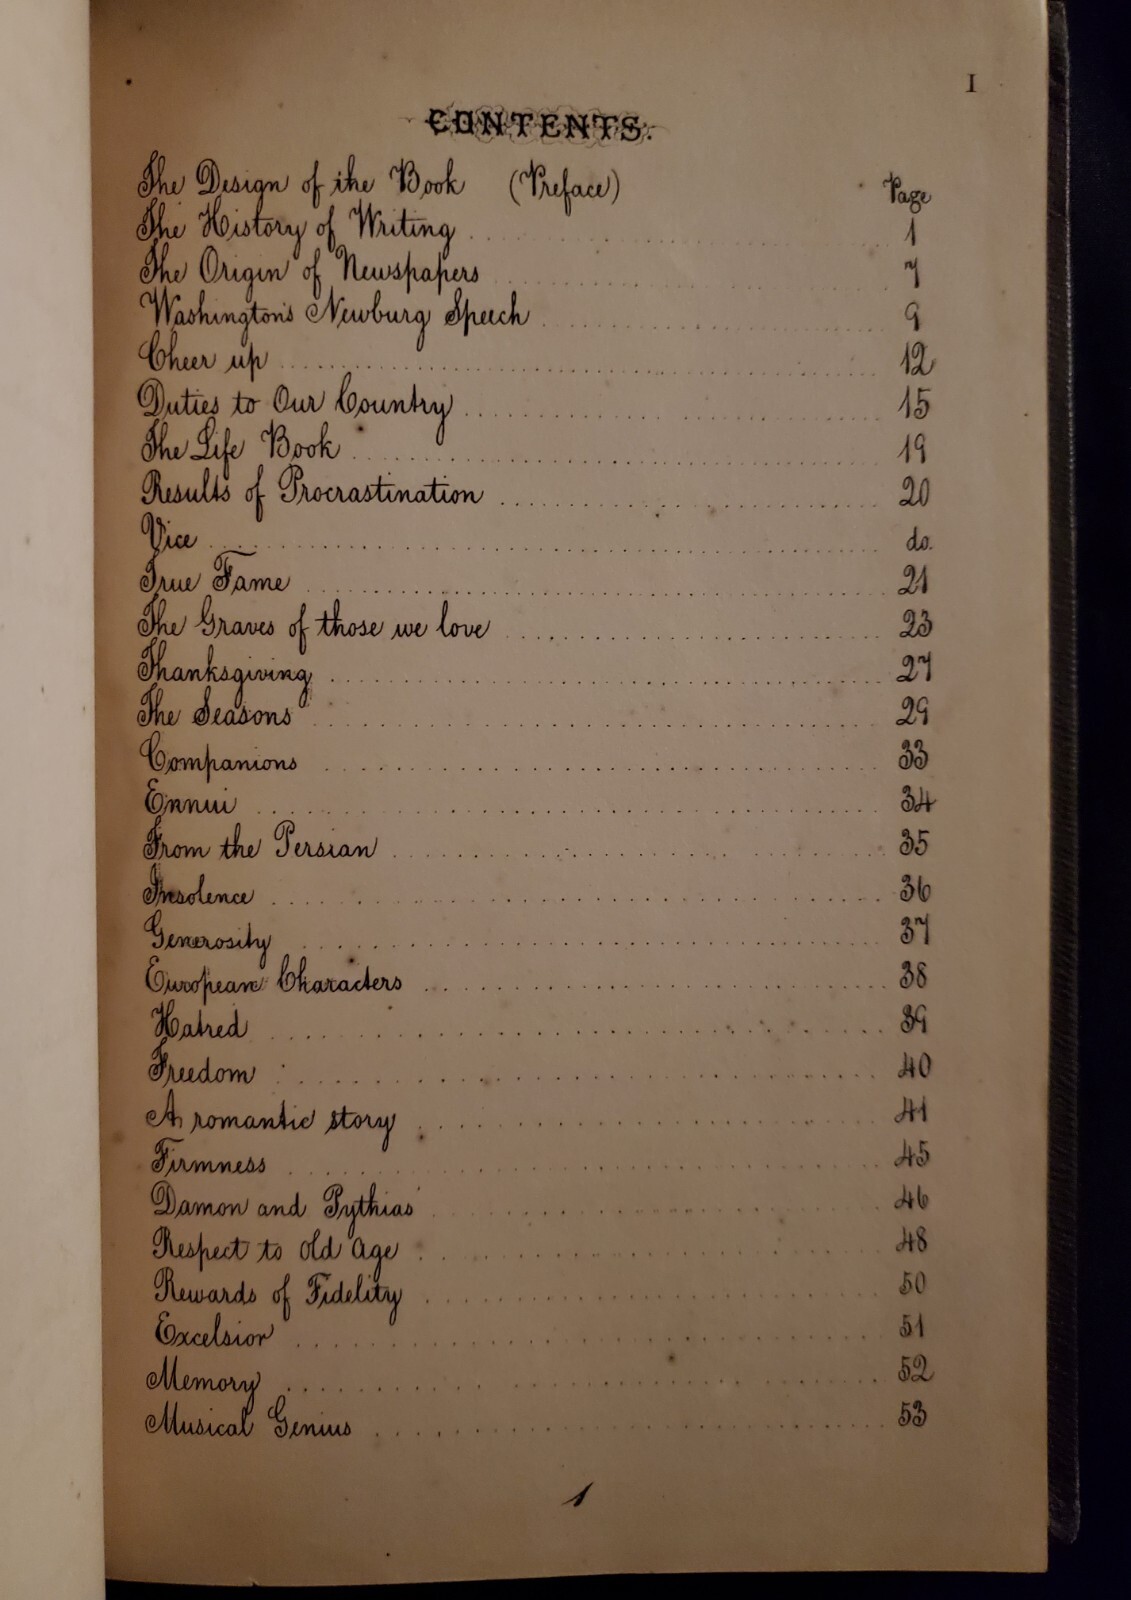 I
CONTENTS.
The Design of the Book (Preface) Page
The History of Writing 1
The Origin of Newspapers 7
Washington's Newburg Speech 9
Cheer up 12
Duties to Our Country 15
The Life Book 19
Results of Procrastination 20
Vice do.
True Fame 21
The Graves of those we love 23
Thanksgiving 27
The Seasons 29
Companions 33
Ennui 34
From the Persian 35
Insolence 36
Generosity 37
European Characters 38
Hatred 39
Freedom 40
A romantic story 41
Firmness 45
Damon and Pythias 46
Respect to old age 48
Rewards of Fidelity 50
Excelsior 51
Memory 52
Musical Genius 53
1